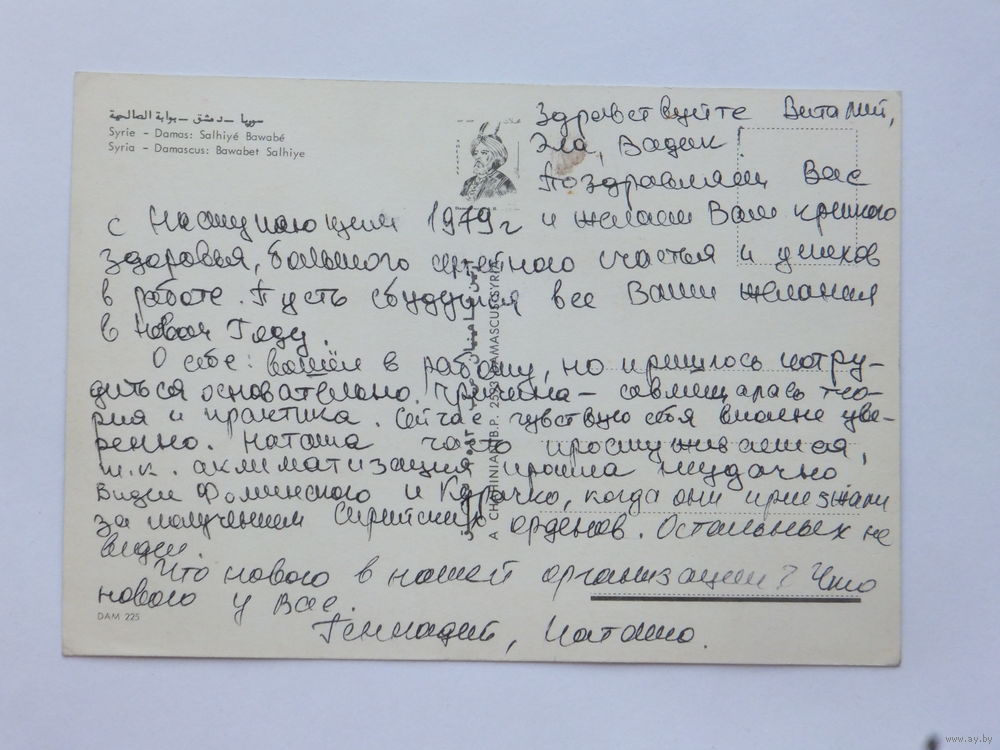 سوريا – دمشق – بوابة الصالحية
Syrie – Damas: Salhiyé Bawabé
Syria – Damascus: Bawabet Salhiye
Здравствуйте Виталий,
Эла, Вадик
Поздравляем Вас
с наступающим 1979г и желаем Вам крепкого
здоровья, большого семейного счастья и успехов
в работе. Пусть сбудутся все Ваши желания
в Новом Году.
О себе: вошёл в работу, но пришлось потру-
диться основательно. Причина – совмещалась тео-
рия и практика. Сейчас чувствую себя вполне уве-
ренно. Наташа часто простуживается,
т.к. аклиматизация прошла неудачно
Видел Фоминского и Курачко, когда они приезжали
за получением Сирийских орденов. Остальных не
видел.
Что нового в нашей организации? Что
нового у вас.
Геннадий, Наташа.
DAM 225
A CHAHINIAN B.P. 2523 DAMASCUS SYRIE
www.ay.by